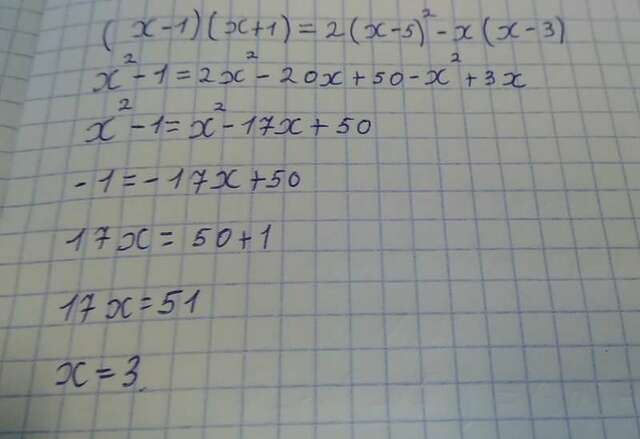 (x-1)(x+1)=2(x-5)²-x(x-3)
x²-1=2x²-20x+50-x²+3x
x²-1=x²-17x+50
-1=-17x+50
17x=50+1
17x=51
x=3